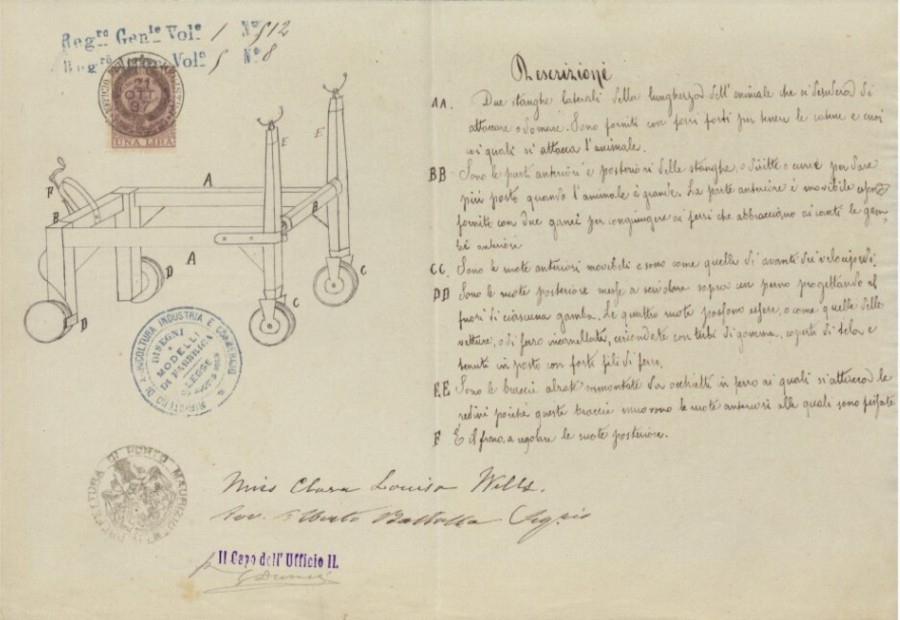 Regro Genle Vole 1 No 512
Regro Vole 5 No 8
31
OTT
UNA LIRA
A
E
E
F
B
B
A
D
C
D
C
MINISTERO DI AGRICOLTURA INDUSTRIA E COMMERCIO
DISEGNI
E
MODELLI
DI FABBRICA
LEGGE
PREFETTURA DI PORTO MAURIZIO
Miss Clara Louisa Wells.
Avv.
Il Capo dell' Ufficio II.
Descrizione
AA. Due stanghe laterali della lunghezza dell' animale che si desidera di
attaccare o domare. Sono forniti con ferri forti per tenere le catene e cuoi
coi quali si attacca l'animale.
BB Sono le parti anteriori e posteriori delle stanghe, o diritte o curve per dare
più posto quando l'animale è grande. La parte anteriore è movibile
fornita con due ganci per congiungere ai ferri che abbracciano le gam-
be anteriore
CC. Sono le ruote anteriori movibili e sono come quelle di avanti dei velocipedi.
DD Sono le ruote posteriore messe a sopra un perno progettando al
fuori di ciascuna gamba. Le quattro ruote possono essere, o come quelle delle
vetture, o di ferro circondate con tubi di gomma, coperti di tela e
tenuti in posto con forte fili di ferro.
EE Sono le braccie sormontate da occhialli in ferro ai quali si attacca le
redini poiche queste braccie muovono le ruote anteriori alle quali sono fissate
F È il freno a regolare le ruote posteriore.